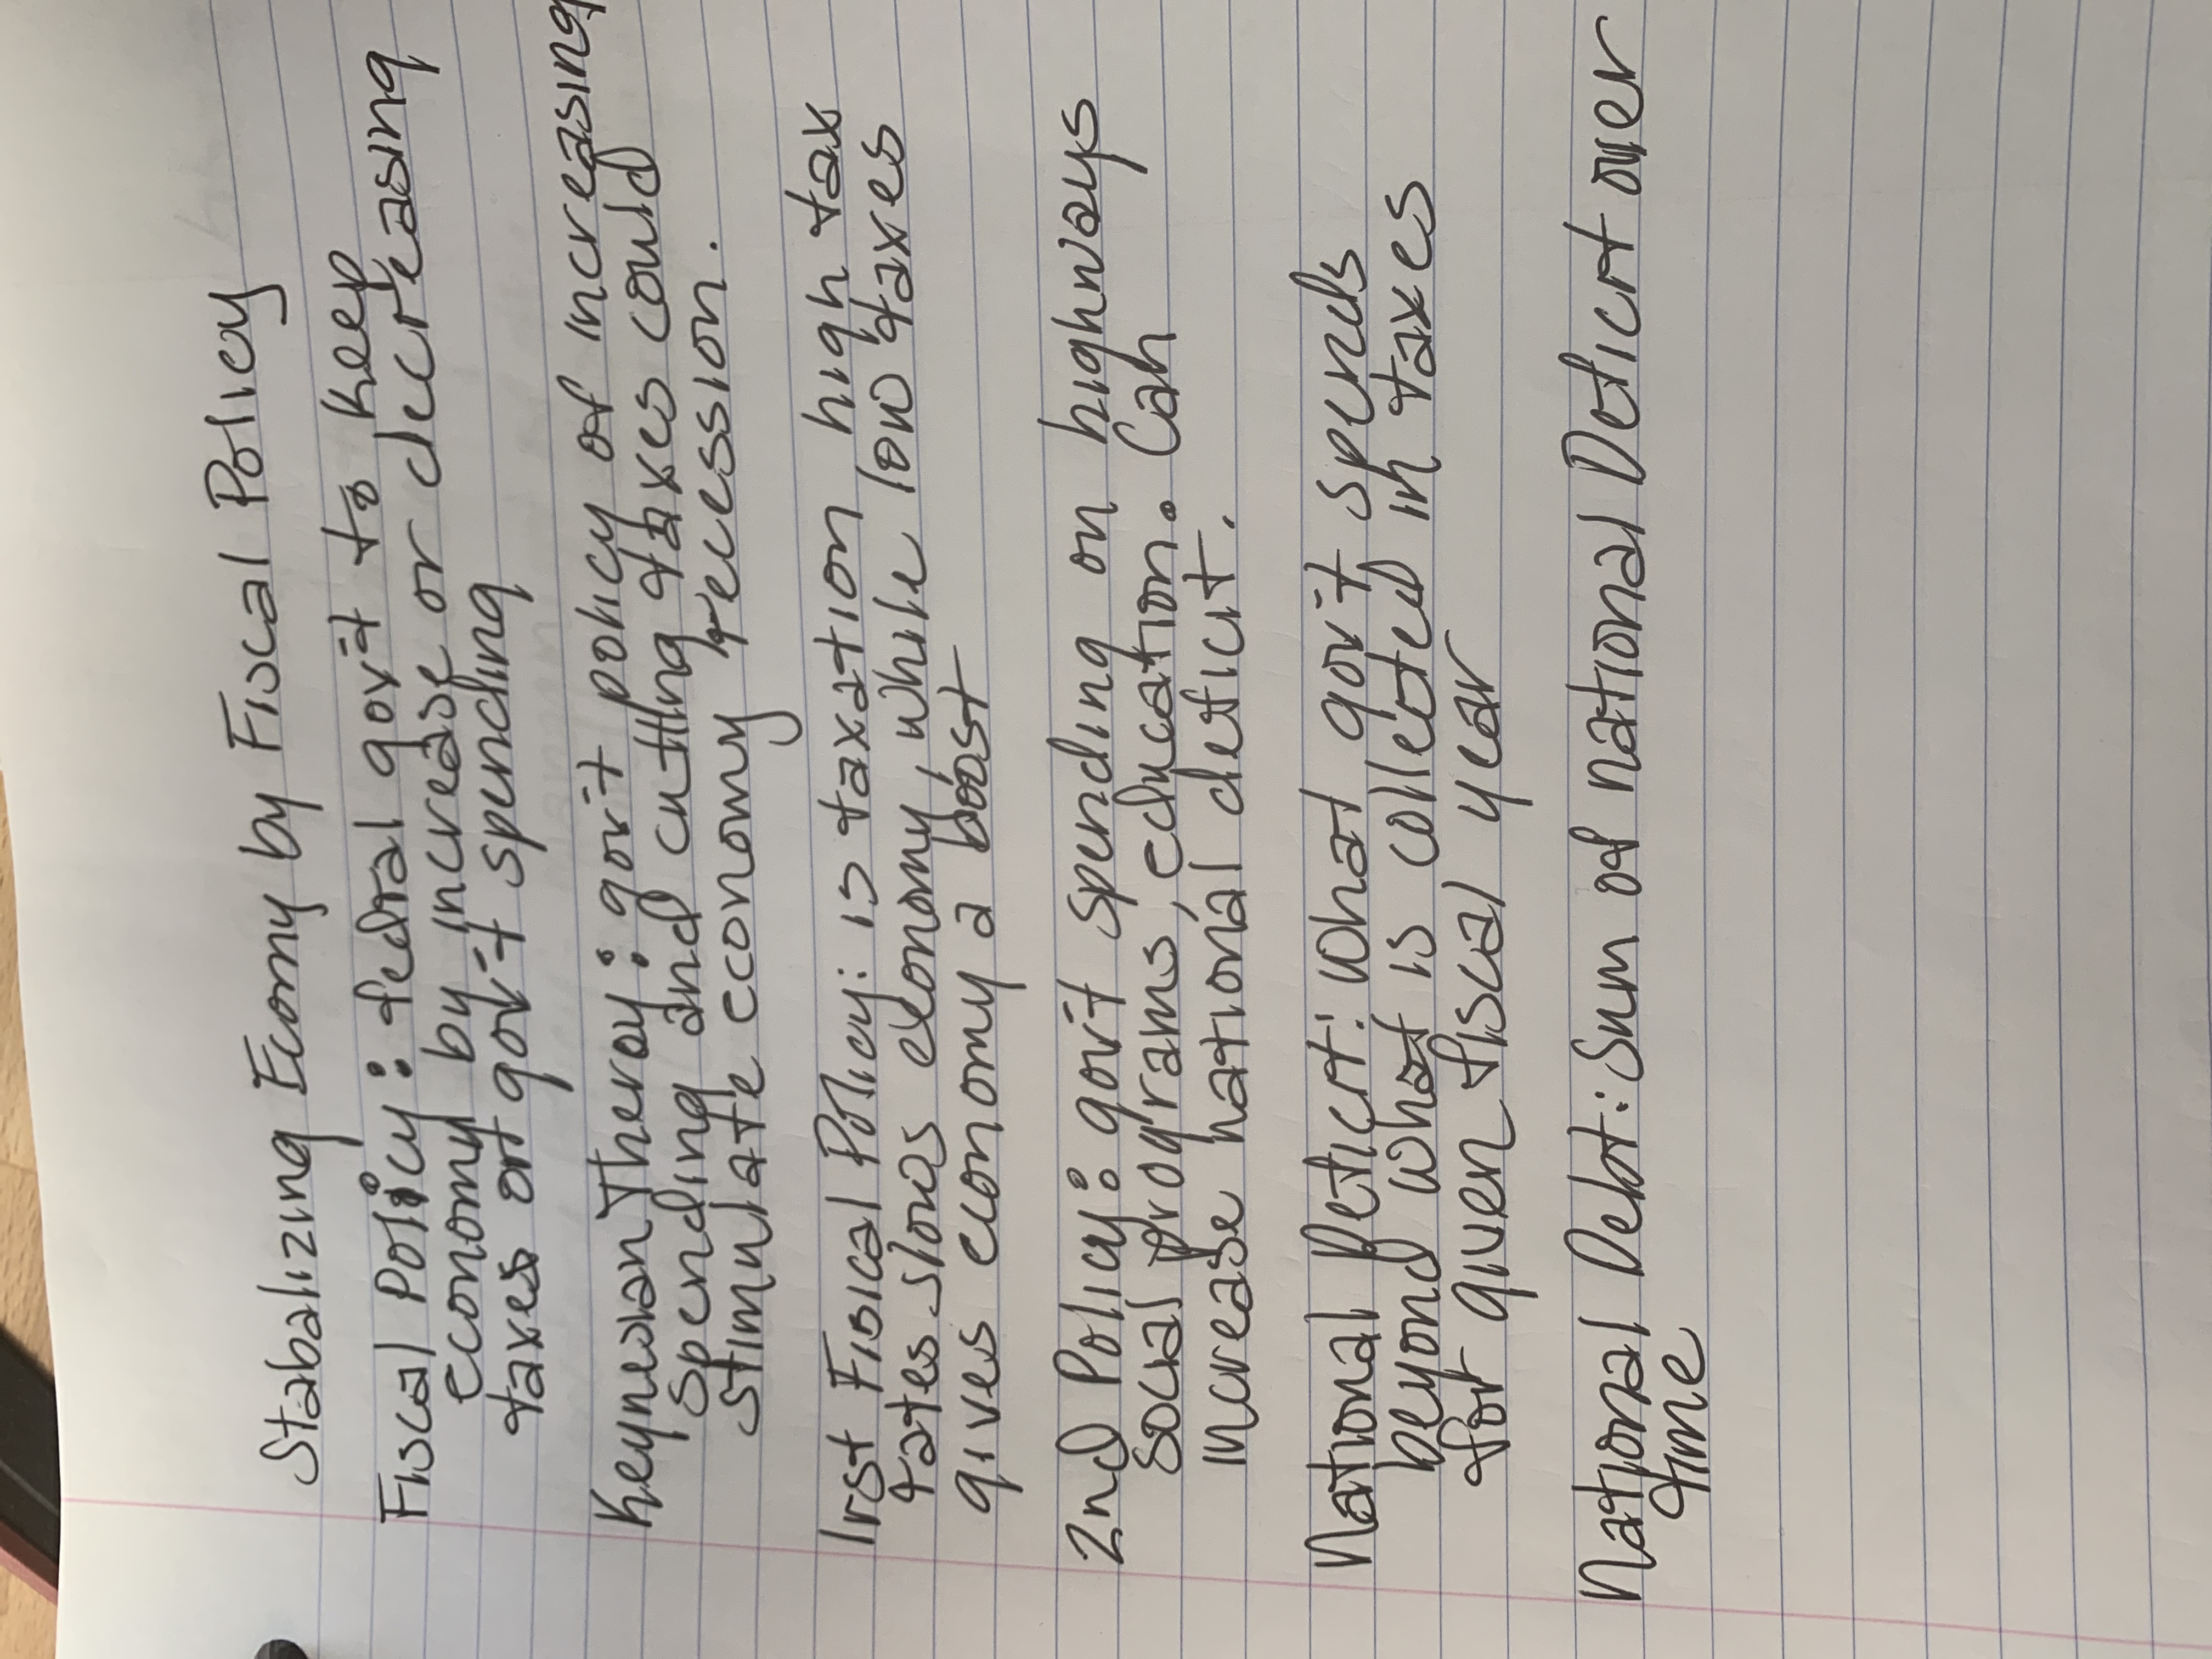 Stabalizing Ecomy by Fiscal Policy
Fiscal Policy: fedral gov't to keep
economy by increase or decreasing
taxes or gov't spending
Keynesian Theroy: gov't policy of increasing
spending and cutting taxes could
stimulate economy recession.
1rst Fisical Policy: is taxation, high tax
rates slows economy, while low taxes
gives economy a boost
2nd Policy: gov't spending on highways
social programs, education. Can
increase national deficit.
National Deficit: What gov't spends
beyond what is collected in taxes
for given fiscal year
National Debt: Sum of national Deficit over
time